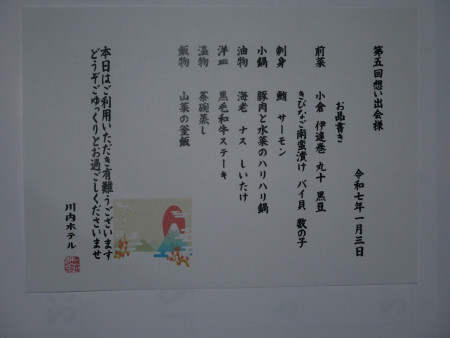 第五回想い出会様
令和七年一月三日
お品書き
前菜 小倉 伊達巻 丸十 黒豆
きびなご南蛮漬け バイ貝 数の子
刺身 鮪 サーモン
小鍋 豚肉と水菜のハリハリ鍋
油物 海老 ナス しいたけ
洋皿 黒毛和牛ステーキ
温物 茶碗蒸し
飯物 山菜の釜飯
本日はご利用いただき有難うございます
どうぞごゆっくりとお過ごしくださいませ
川内ホテル